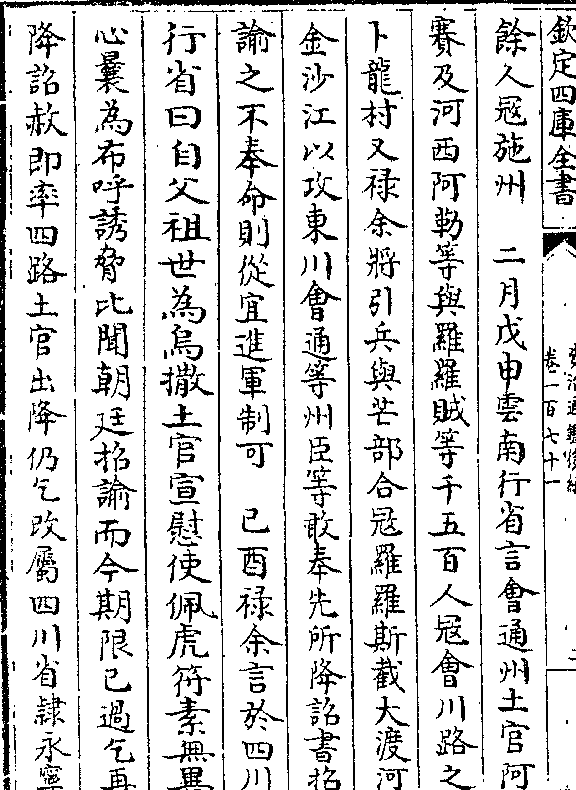 欽定四庫全書
卷一百七十一
餘人冦施州　二月戊申雲南行省言會通州土官阿
賽及河西阿勒等與羅羅賊等千五百人冦會川路之
卜龍村又祿余將引兵與芒部合冦羅羅斯截大渡河
金沙江以攻東川會通等州臣等敢奉先所降詔書招
諭之不奉命則從宜進軍制可　己酉祿余言於四川
行省曰自父祖世為烏撒土官宣慰使佩虎符素無異
心曩為布呼誘脅比聞朝廷招諭而今期限已過乞再
降詔赦即率四路土官出降仍乞改屬四川省隸永寧